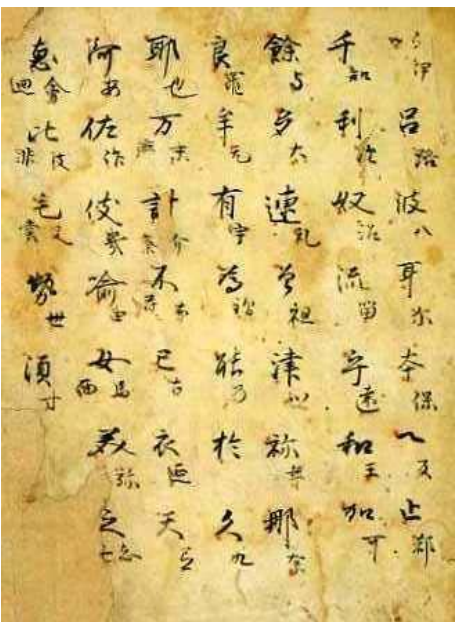 伊 呂 路 波 八 耳 尓 本 保 へ 反 止
千 知 利 奴 沼 流 留 乎 遠 和 王 加 可
餘 与 多 太 連 礼 曽 祖 津 祢 那 奈
良 羅 牟 无 有 宇 為 能 乃 於 久 九
耶 也 万 末 麻 計 介 不 布 己 古 衣 延 天
阿 安 佐 作 伎 喩 由 女 馬 面 美 弥 之 志 士
恵 會 廻 比 皮 非 毛 文 勢 世 須 寸